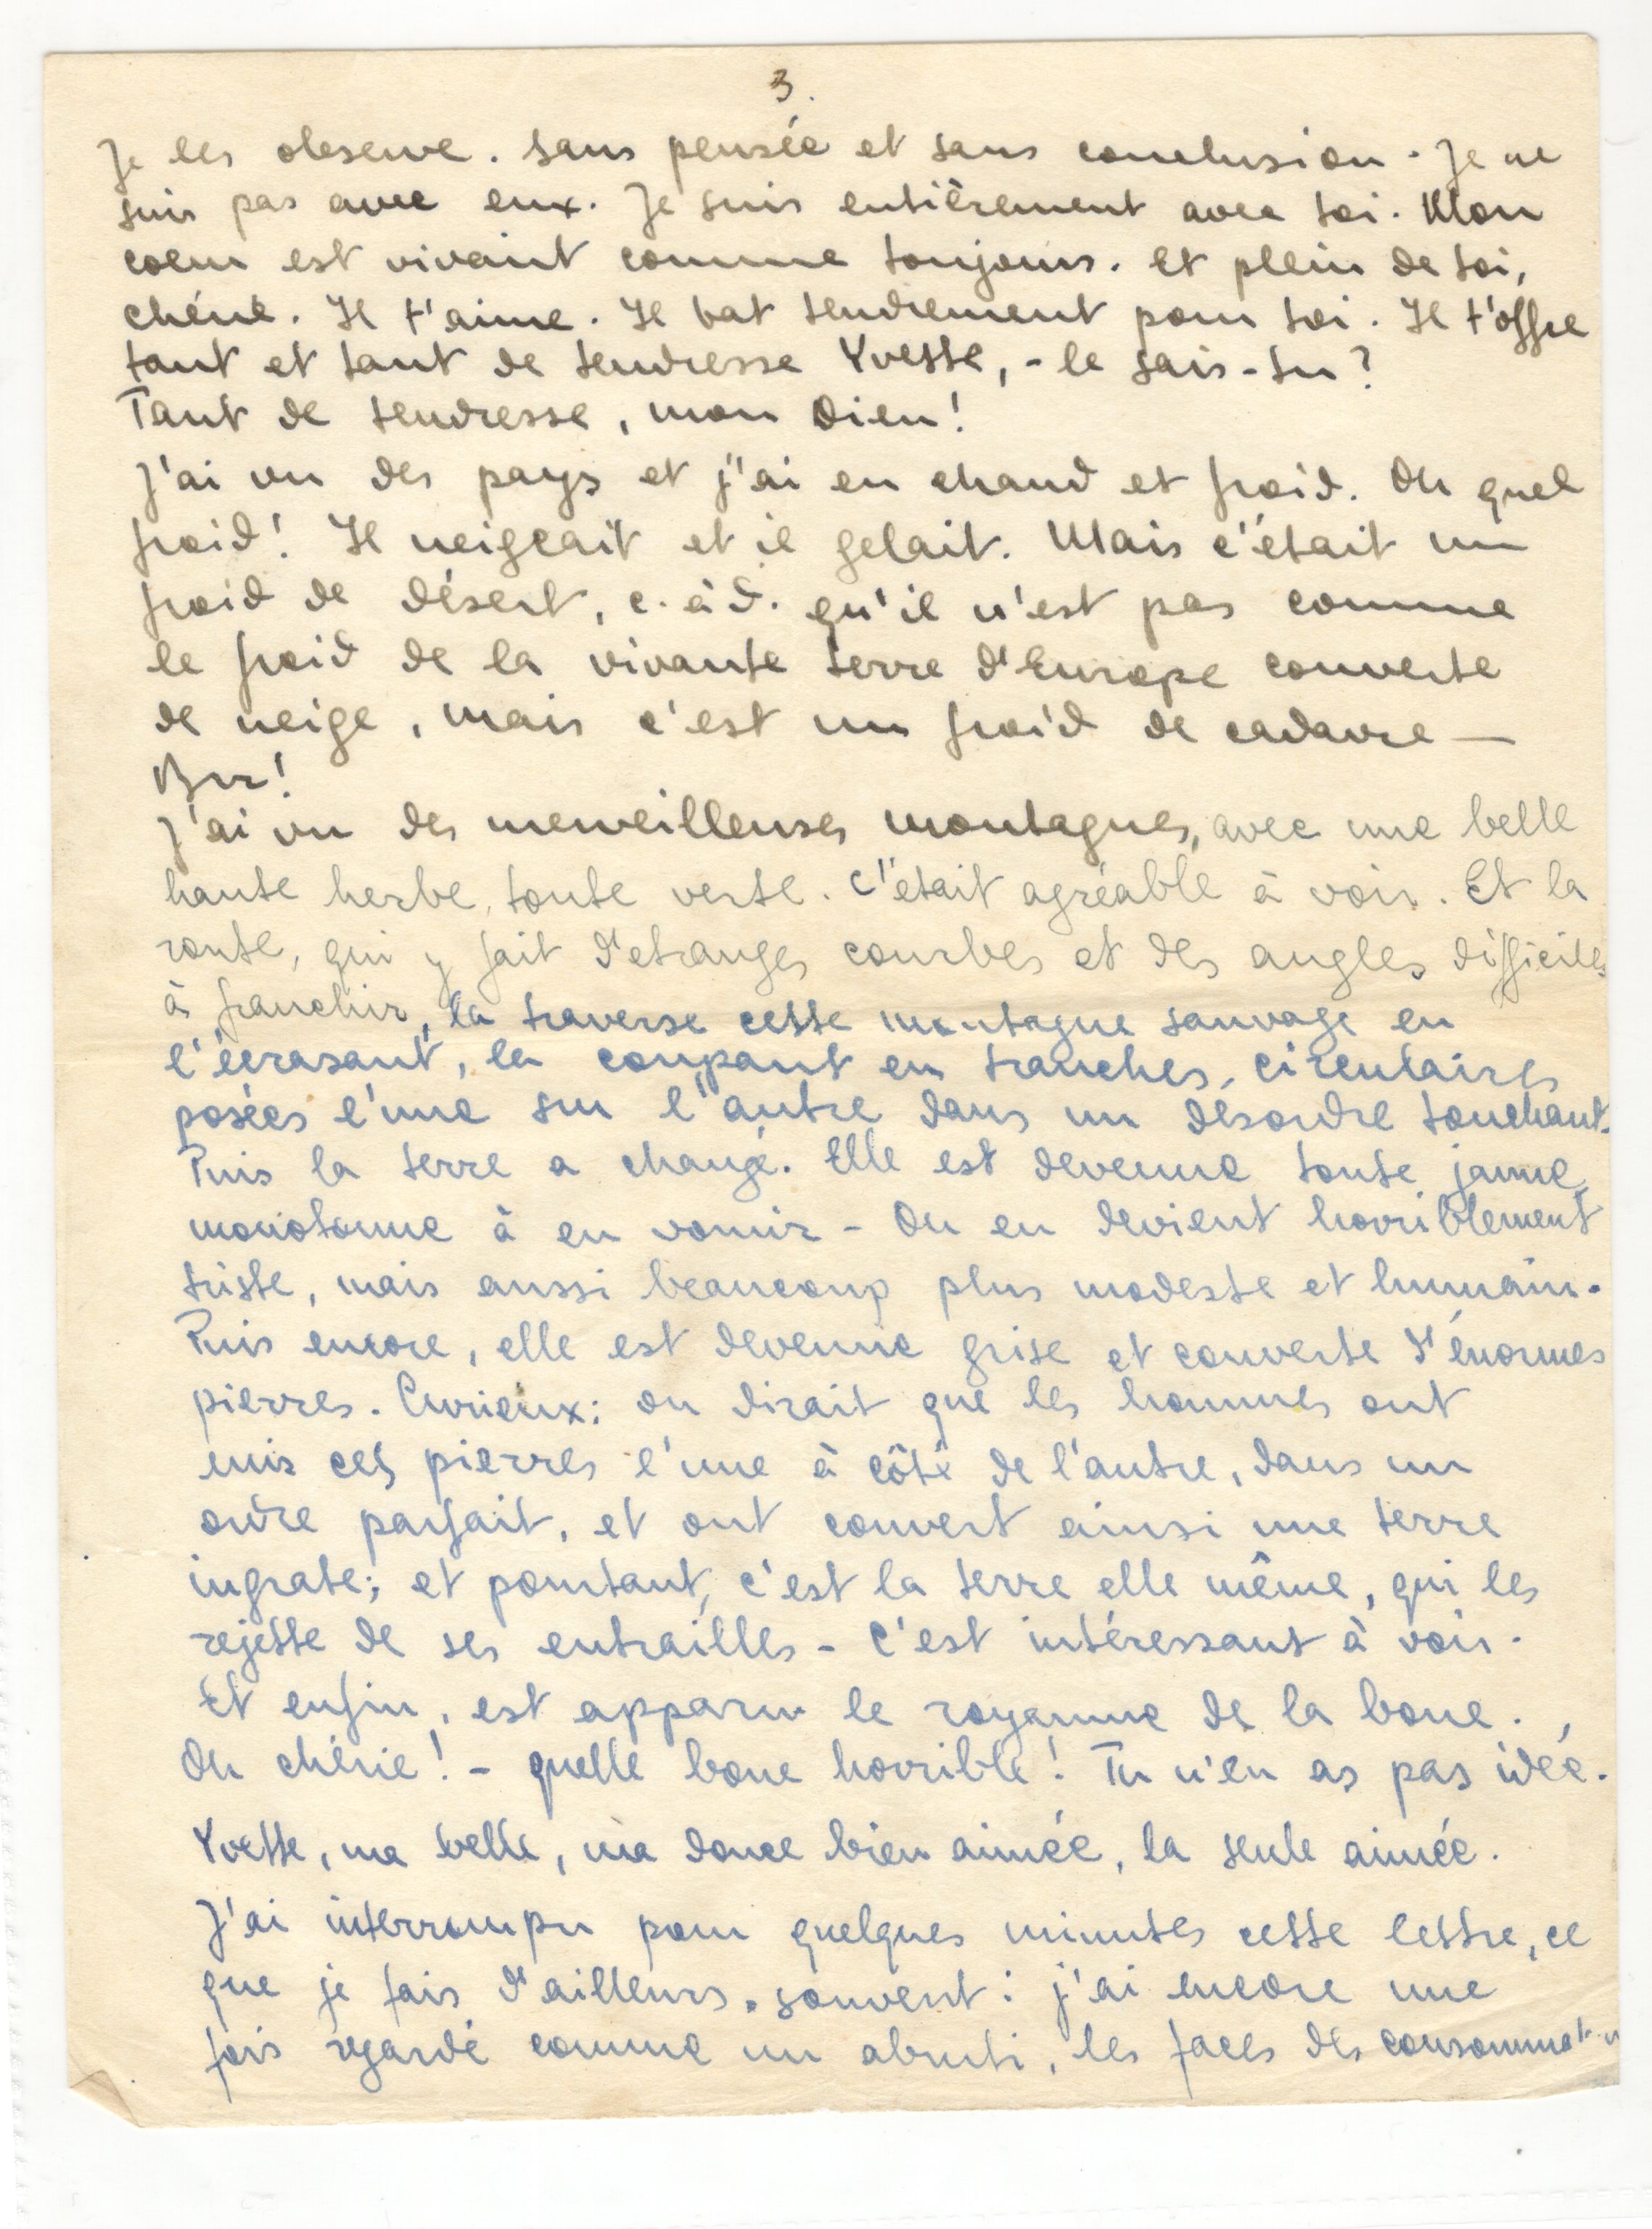 3.
Je les observe. Sans pensée et sans conclusion. Je ne
suis pas avec eux. Je suis entièrement avec toi. Mon
coeur est vivant comme toujours. Et plein de toi,
chérie. Il t'aime. Il bat tendrement pour toi. Il t'offre
tant et tant de tendresse Yvette, - le sais-tu?
Tant de tendresse, mon Dieu!
J'ai vu des pays et j'ai eu chaud et froid. Oh quel
froid! Il neigeait et il gelait. Mais c'était un
froid de désert, c.àd. qu'il n'est pas comme
le froid de la vivante terre d'Europe couverte
de neige, mais c'est un froid de cadavre —
Brr!
J'ai vu des merveilleuses montagnes, avec une belle
haute herbe, toute verte. C'était agréable à voir. Et la
route, qui y fait d'etranges courbes et des angles difficiles
à franchir, la traverse cette montagne sauvage en
l'écrasant, la coupant en tranches, circulaires
posées l'une sur l'autre dans un désordre touchant.
Puis la terre a changé. Elle est devenue toute jaune,
monotonne à en vomir - On en devient horriblement
triste, mais aussi beaucoup plus modeste et humain.
Puis encore, elle est devenue grise et couverte d'énormes
pierres. Curieux: on dirait que les hommes ont
mis ces pierres l'une à côté de l'autre, dans un
ordre parfait, et ont couvert ainsi une terre
ingrate; et pourtant, c'est la terre elle même, qui les
rejette de ses entrailles - C'est intéressant à voir.
Et enfin, est apparu le royaume de la boue.
Oh chérie! - quelle boue horrible! Tu n'en as pas idée.
Yvette, ma belle, ma douce bien aimée, la seule aimée.
J'ai interrompu pour quelques minutes cette lettre, ce
que je fais d'ailleurs souvent: j'ai encore une
fois regardé comme un abruti, les faces des